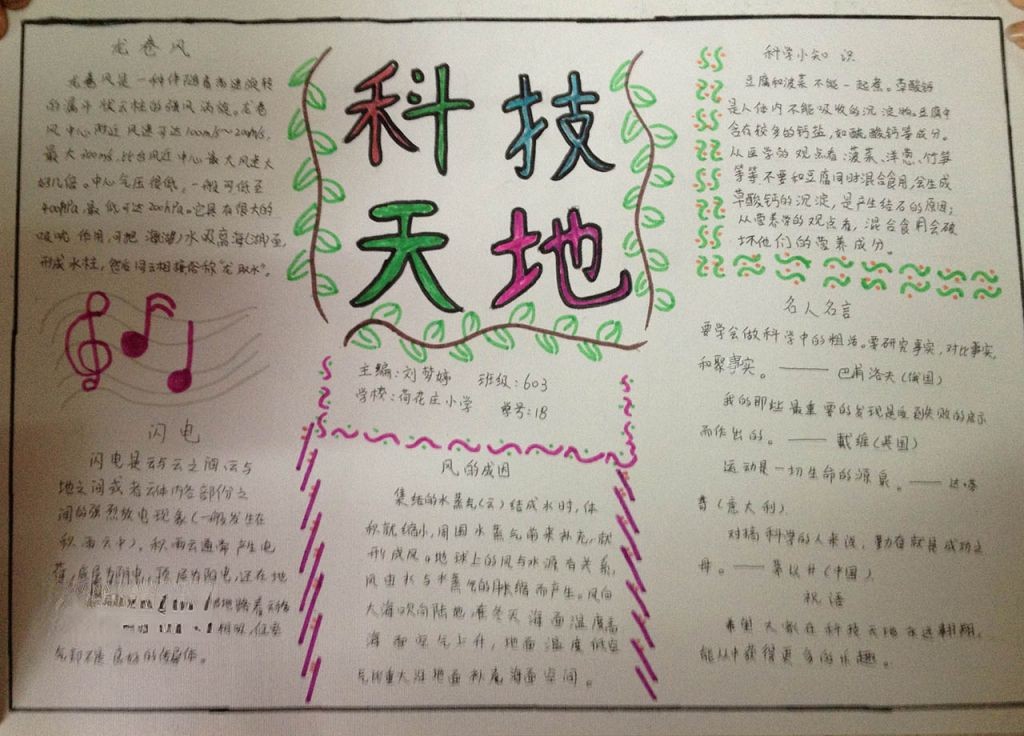 龙卷风
龙卷风是一种伴随着高速旋转
的漏斗状云柱的强风涡旋。龙卷
风中心附近风速可达100m/s~200m/s,
最大300m/s,比台风近中心最大风速大
好几倍。中心气压很低,一般可低至
400hPa,最低可达200hPa。它具有很大的
吸吮作用,可把海(湖)水吸离海(湖)面,
形成水柱,然后同云相接俗称“龙取水”。
闪电
闪电是云与云之间、云与
地之间或者云体内各部份之
间的强烈放电现象(一般发生在
积雨云中)。积雨云通常产生电
荷,底层为阴电,顶层为阳电,还在地
相吸,但空
气却不是良好的传导体。
科技
天地
主编:刘梦婷 班级:603
学校:荷花庄小学 学号:18
风的成因
集结的水蒸气(云)结成水时,体
积就缩小,周围水蒸气前来补充,就
形成风。地球上的风与水源有关系,
风由水与水蒸气的胀缩而产生。风向
大海吹向陆地在冬天海面温度高
海面空气上升,地面温度低空
气比重大沿地面补充海面空间。
科学小知识
豆腐和菠菜不能一起煮。草酸钙
是人体内不能吸收的沉淀物。豆腐中
含在较多的钙盐,如硫酸钙等成分。
从医学的观点看:菠菜、洋葱、竹笋
等等不要和豆腐同时混合食用,会生成
草酸钙的沉淀,是产生结石的原因;
从营养学的观点看,混合食用会破
坏他们的营养成分。
名人名言
要学会做科学中的粗活。要研究事实,对比事实,
和聚事实。——巴甫洛夫(俄国)
我的那些最重要的发现是受到失败的启示
而作出的。——戴维(英国)
运动是一切生命的源泉。——达·芬
奇(意大利)
对搞科学的人来说,勤奋就是成功之
母。——茅以升(中国)
祝语
希望大家在科技天地永远翱翔,
能从中获得更多的乐趣。